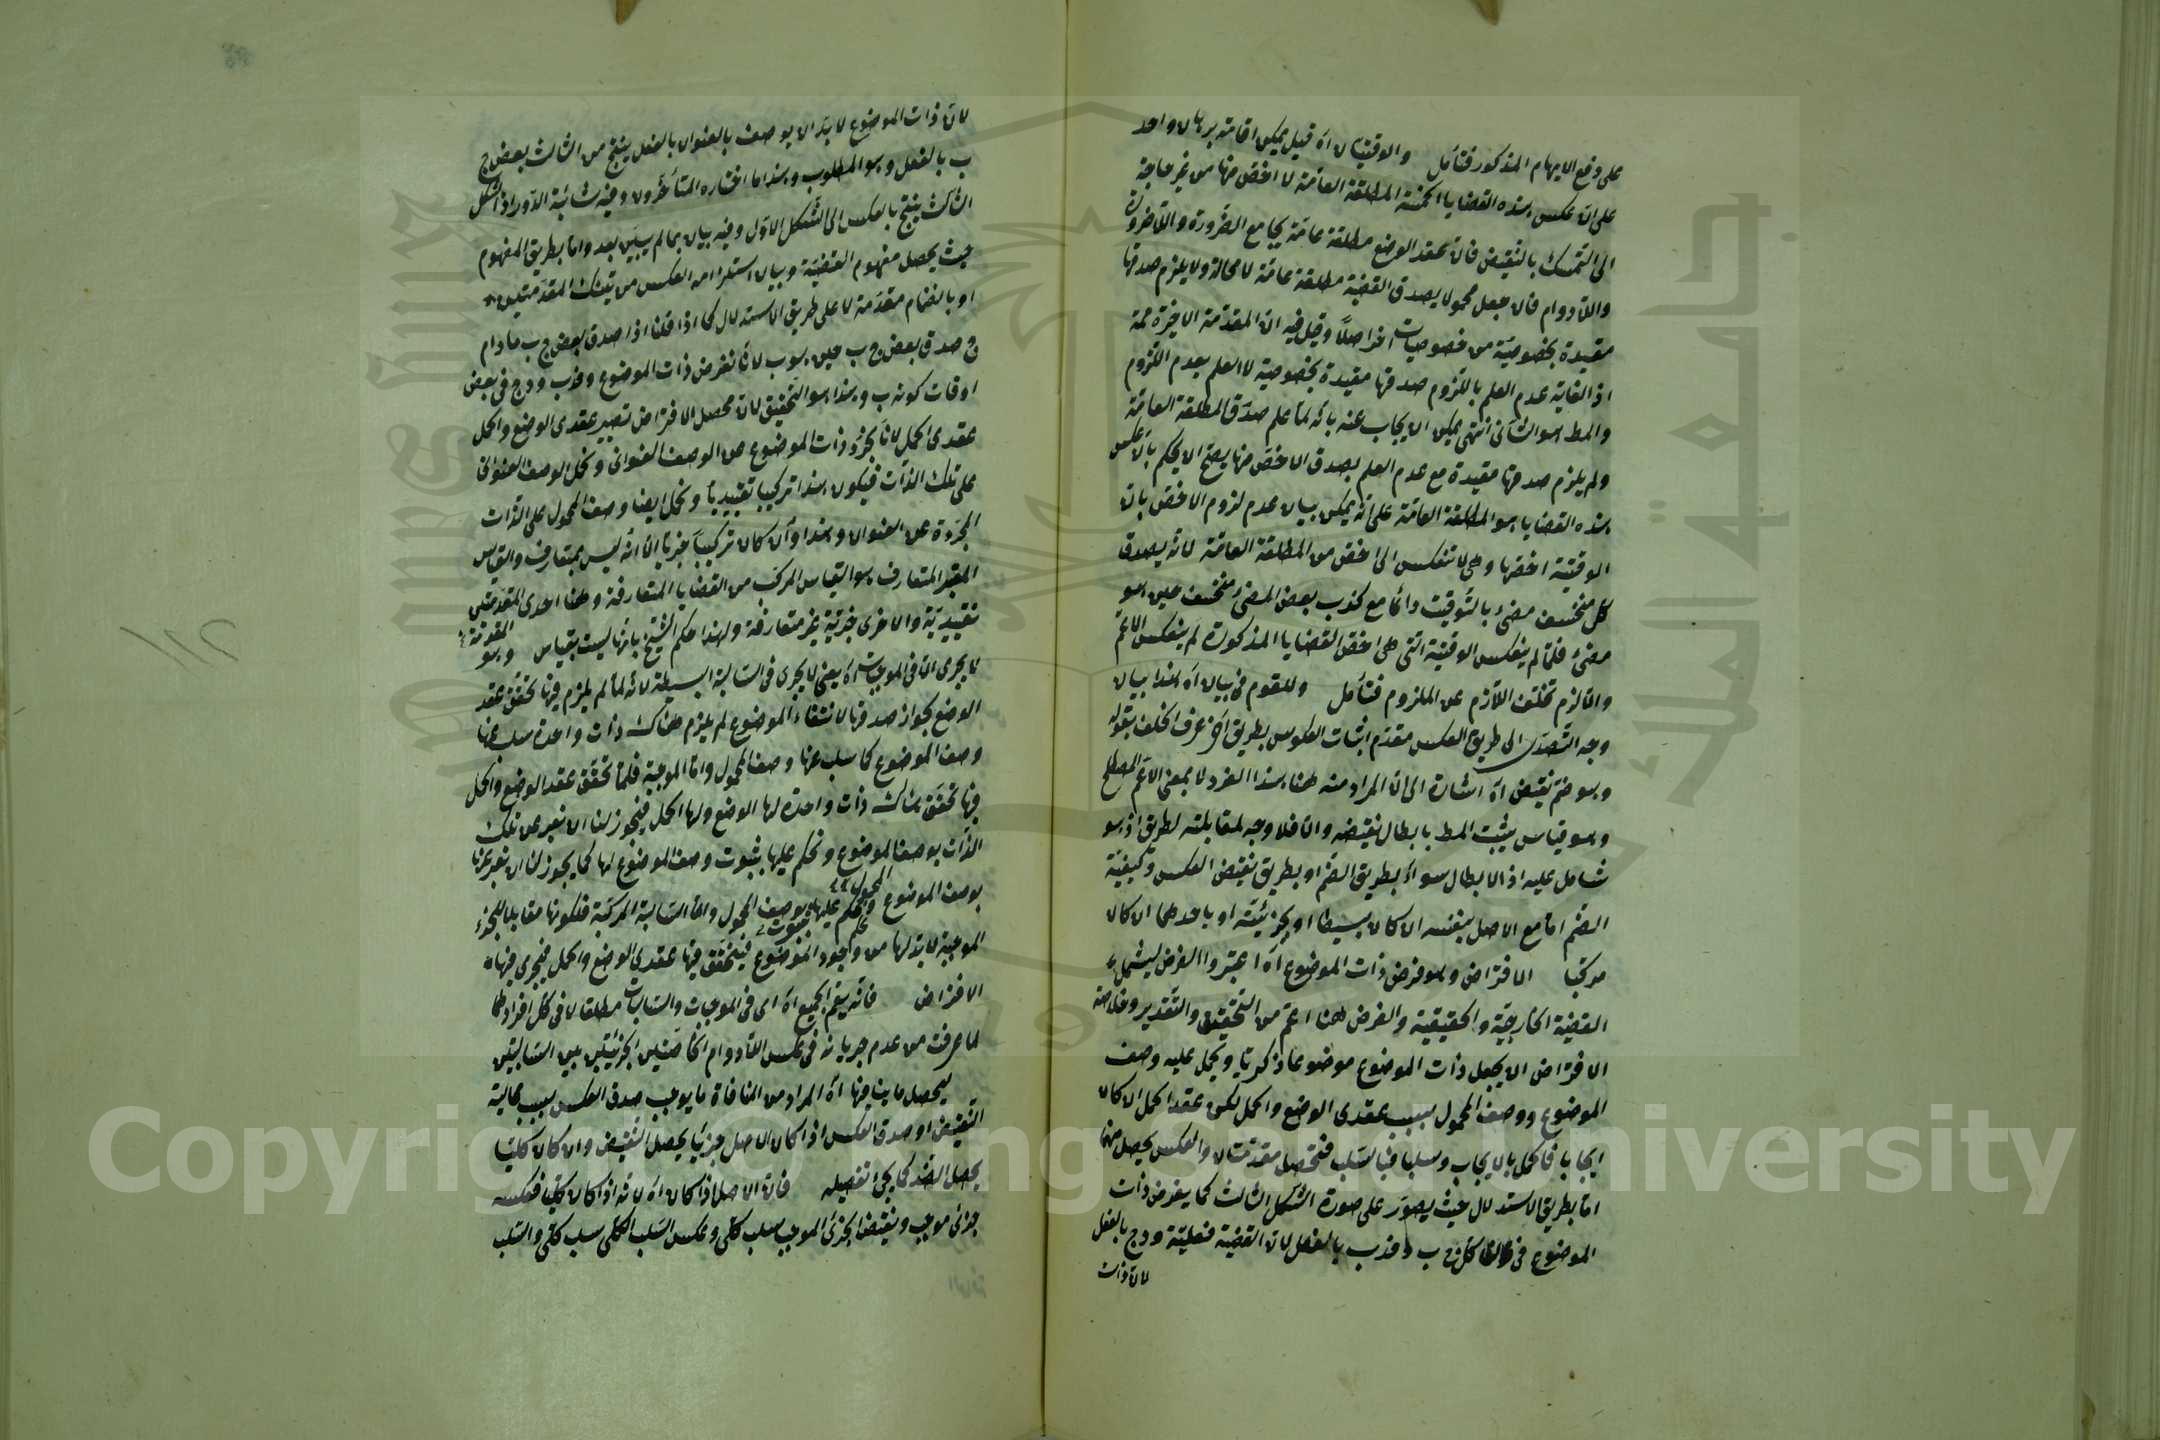 على دفع الايهام المذكور فتأمل والوقتيتان اه قيل يمكن اقامة برهان واحد
على ان عكس هذه القضايا الخمسة المطلقة العامة لا اخص منها من غير حاجة
الى التمسك بالنقيض فان عقد الوضع مطلقة عامة يجامع الضرورة واللاضرورة
واللادوام فان جعل محمولا يصدق القضية مطلقة عامة لا محالة ولا يلزم صدقها
مقيدة بخصوصية من خصوصيات اخر اصلا وقيل فيه ان المقدمة الاخيرة ممنوعة
اذ الغاية عدم العلم باللزوم صدقها مقيدة بخصوصية لا العلم بعدم اللزوم
والمط هو الثاني انتهى يمكن الايجاب عنه بانه لما علم صدق المطلقة العامة
ولم يلزم صدقها مقيدة مع عدم العلم بصدق الاخص منها يصح ان يحكم بان عكس
هذه القضايا هو المطلقة العامة على انه يمكن بيان عدم لزوم الاخص بان
الوقتية اخصها وهي لا تنعكس الى اخص من المطلقة العامة لانه يصدق
كل منخسف مضئ بالتوقيت دائما مع كذب بعض المضئ منخسف حين هو
مضئ فلما لم ينعكس الوقتية التي هي اخص القضايا المذكورة لم ينعكس الاعم
والا لزم تخلف اللازم عن الملزوم فتأمل وللقوم في بيان اه هذا بيان
وجه التصدى الى طريق العكس مقدم اثبات العكوس بطريق اخر عرف الخلف بقوله
وهو ضم نقيض اه اشارة الى ان المراد منه ههنا هذا الفرد لا بمعنى الاعم المصطلح
وهو قياس يثبت المط بابطال نقيضه والا فلا وجه لمقابلته لطريق اذ هو
شامل عليه اذ الابطال سواء بطريق الضم او بطريق نقيض العكس وكيفية
الضم اما مع الاصل بنفسه ان كان بسيطا او بجزئيته او باحدهما ان كان
مركبا الافتراض وهو فرض ذات الموضوع اه اعتبروا الفرض ليشمل
القضية الخارجية والحقيقية والفرض ههنا اعم من التحقيق والتقدير وخلاصة
الافتراض ان يجعل ذات الموضوع موضوعا ذكريا ويحمل عليه وصف
الموضوع ووصف المحمول بسبب عقدى الوضع والحمل لكن عقد الحمل ان كان
ايجابا فالحمل بالايجاب وسلبا فبالسلب فتحصل مقدمتان والعكس يحصل منهما
اما بطريق الاستدلال بحيث يصور على صورة الشكل الثالث كما يفرض ذات
الموضوع في قولنا كل ج ب د فد ب بالفعل لان القضية فعلية ود ج بالفعل
لان ذات
لان ذات الموضوع لا بد ان يوصف بالعنوان بالفعل ينتج من الثالث بعض ج
ب بالفعل وهو المطلوب وهذا ما اختاره المتأخرون وفيه شائبة الدور اذ الشكل
الثالث ينتج بالعكس الى الشكل الاول وفيه بيان بما لم يبين بعد واما بطريق المفهوم
حيث يحصل مفهوم القضية وبيان استلزامه العكس من تينك المقدمتين
او بانضمام مقدمة لا على طريق الاستدلال كما اذا قلنا اذا صدق بعض ج ب ما دام
ج صدق بعض ج ب حين هو ب لانا نفرض ذات الموضوع د فد ب ود ج في بعض
اوقات كونه ب وهذا هو التحقيق لان محصل الافتراض تصيير عقدى الوضع والحمل
عقدى الحمل لانا نجرد ذات الموضوع عن الوصف العنواني ونحمل الوصف العنواني
على تلك الذات فيكون هذا تركيبا تقييديا ونحمل ايضا وصف المحمول على الذات
المجردة عن العنوان وهذا وان كان تركيبا خبريا الا انه ليس بمتعارف والقياس
المعتبر المتعارف هو القياس المركب من القضايا المتعارفة وههنا احدى المقدمتين
تقييدية والاخرى خبرية غير متعارفة ولهذا حكم الشيخ بانها ليست بقياس وهو
لا يجرى الا في الموجبات اه يعني لا يجرى في السالبة البسيطة لانه لما لم يلزم فيها تحقق عقد
الوضع بجواز صدقها لانتفاء الموضوع لم يلزم هناك ذات واحدة سلب عنها
وصف الموضوع كما سلب عنها وصف المحمول واما الموجبة فلما تحقق عقد الوضع والحمل
فيها تحقق هناك ذات واحدة لها الوضع ولها الحمل فيجوز لنا ان نعبر عن تلك
الذات بوصف الموضوع ونحكم عليها بثبوت وصف الموضوع لها كما يجوز لنا ان نعبر عنها
بوصف الموضوع ونحكم عليها بثبوت وصف المحمول واما السالبة المركبة فلكونها مقابلا للجزء
الموجبة لا بد لها من وجود الموضوع فيتحقق فيها عقدى الوضع والحمل فيجرى فيها
الافتراض فانه يعم الجميع اه اى في الموجبات والسالبات مطلقا لا في كل افرادها
لما عرفت من عدم جريانه في عكس اللادوام الخاصتين الجزئيتين بين السالبتين
ليحصل ما ينافيها اه المراد من المنافاة ما يوجب صدق العكس بسبب محالية
النقيض او صدق العكس اذا كان الاصل جزئيا يحصل النقيض وان كان كليا
يحصل الضد كما يجئ تفصيله فان الاصل اذا كان اه لانه اذا كان كليا فعكسه
جزئ موجب ونقيض الجزئ الموجب سلب كلي وعكس السلب الكلي سلب كلي والسلب